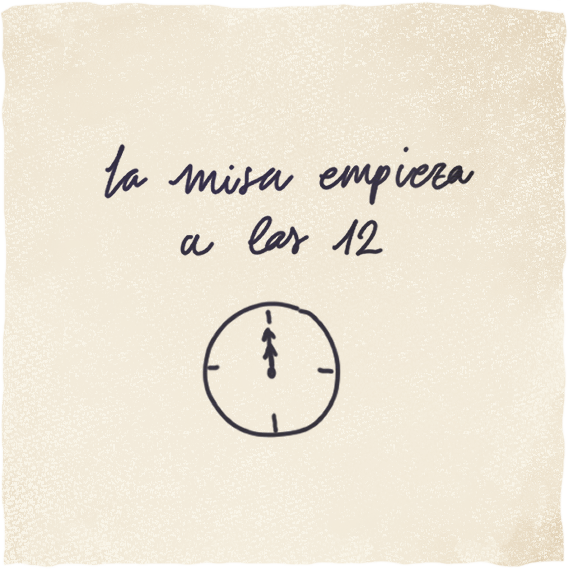 la misa empieza
a las 12